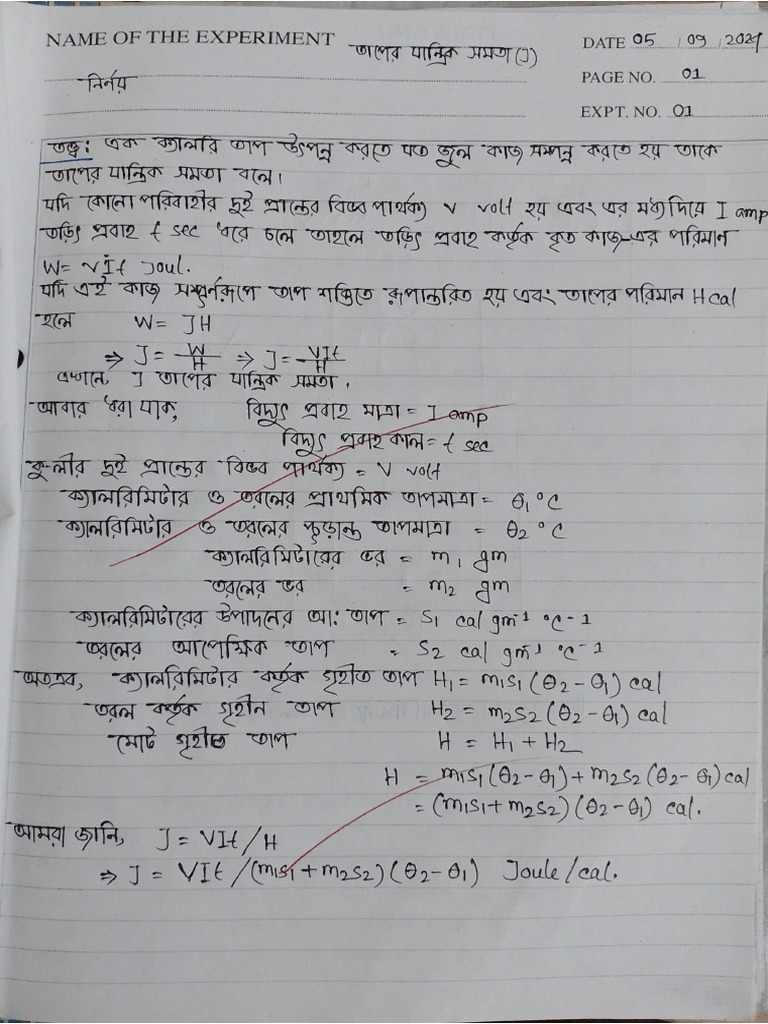 NAME OF THE EXPERIMENT তাপের যান্ত্রিক সমতা (J)
DATE 05 / 09 / 2021
নির্নয়
PAGE NO. 01
EXPT. NO. 01
তত্ত্ব: এক ক্যালরি তাপ উৎপন্ন করতে যত জুল কাজ সম্পন্ন করতে হয় তাকে
তাপের যান্ত্রিক সমতা বলে।
যদি কোনো পরিবাহীর দুই প্রান্তের বিভব পার্থক্য V volt হয় এবং এর মধ্যদিয়ে I amp
তড়িৎ প্রবাহ t sec ধরে চলে তাহলে তড়িৎ প্রবাহ কর্তৃক কৃত কাজ-এর পরিমান
W= Vit Joul.
যদি এই কাজ সম্পূর্নরূপে তাপ শক্তিতে রূপান্তরিত হয় এবং তাপের পরিমান H cal
হলে W= JH
⇒ J = W/H ⇒ J = VIt/H
এখানে, J তাপের যান্ত্রিক সমতা,
আবার ধরা যাক, বিদ্যুৎ প্রবাহ মাত্রা = I amp
বিদ্যুৎ প্রবাহ কাল = t sec
কু-লীর দুই প্রান্তের বিভব পার্থক্য = V volt
ক্যালরিমিটার ও তরলের প্রাথমিক তাপমাত্রা = θ₁ °C
ক্যালরিমিটার ও তরলের চূড়ান্ত তাপমাত্রা = θ₂ °C
ক্যালরিমিটারের ভর = m₁ gm
তরলের ভর = m₂ gm
ক্যালরিমিটারের উপাদনের আ: তাপ = S₁ cal gm⁻¹ °C⁻¹
তরলের আপেক্ষিক তাপ = S₂ cal gm⁻¹ °C⁻¹
অতএব, ক্যালরিমিটার কর্তৃক গৃহীত তাপ H₁ = m₁s₁ (θ₂ – θ₁) cal
তরল কর্তৃক গৃহীন তাপ H₂ = m₂s₂ (θ₂ – θ₁) cal
মোট গৃহীত তাপ H = H₁ + H₂
H = m₁s₁ (θ₂ – θ₁) + m₂s₂ (θ₂ – θ₁) cal
= (m₁s₁ + m₂s₂) (θ₂ – θ₁) cal.
আমরা জানি, J = VIt / H
⇒ J = VIt / (m₁s₁ + m₂s₂) (θ₂ – θ₁) Joule / cal.